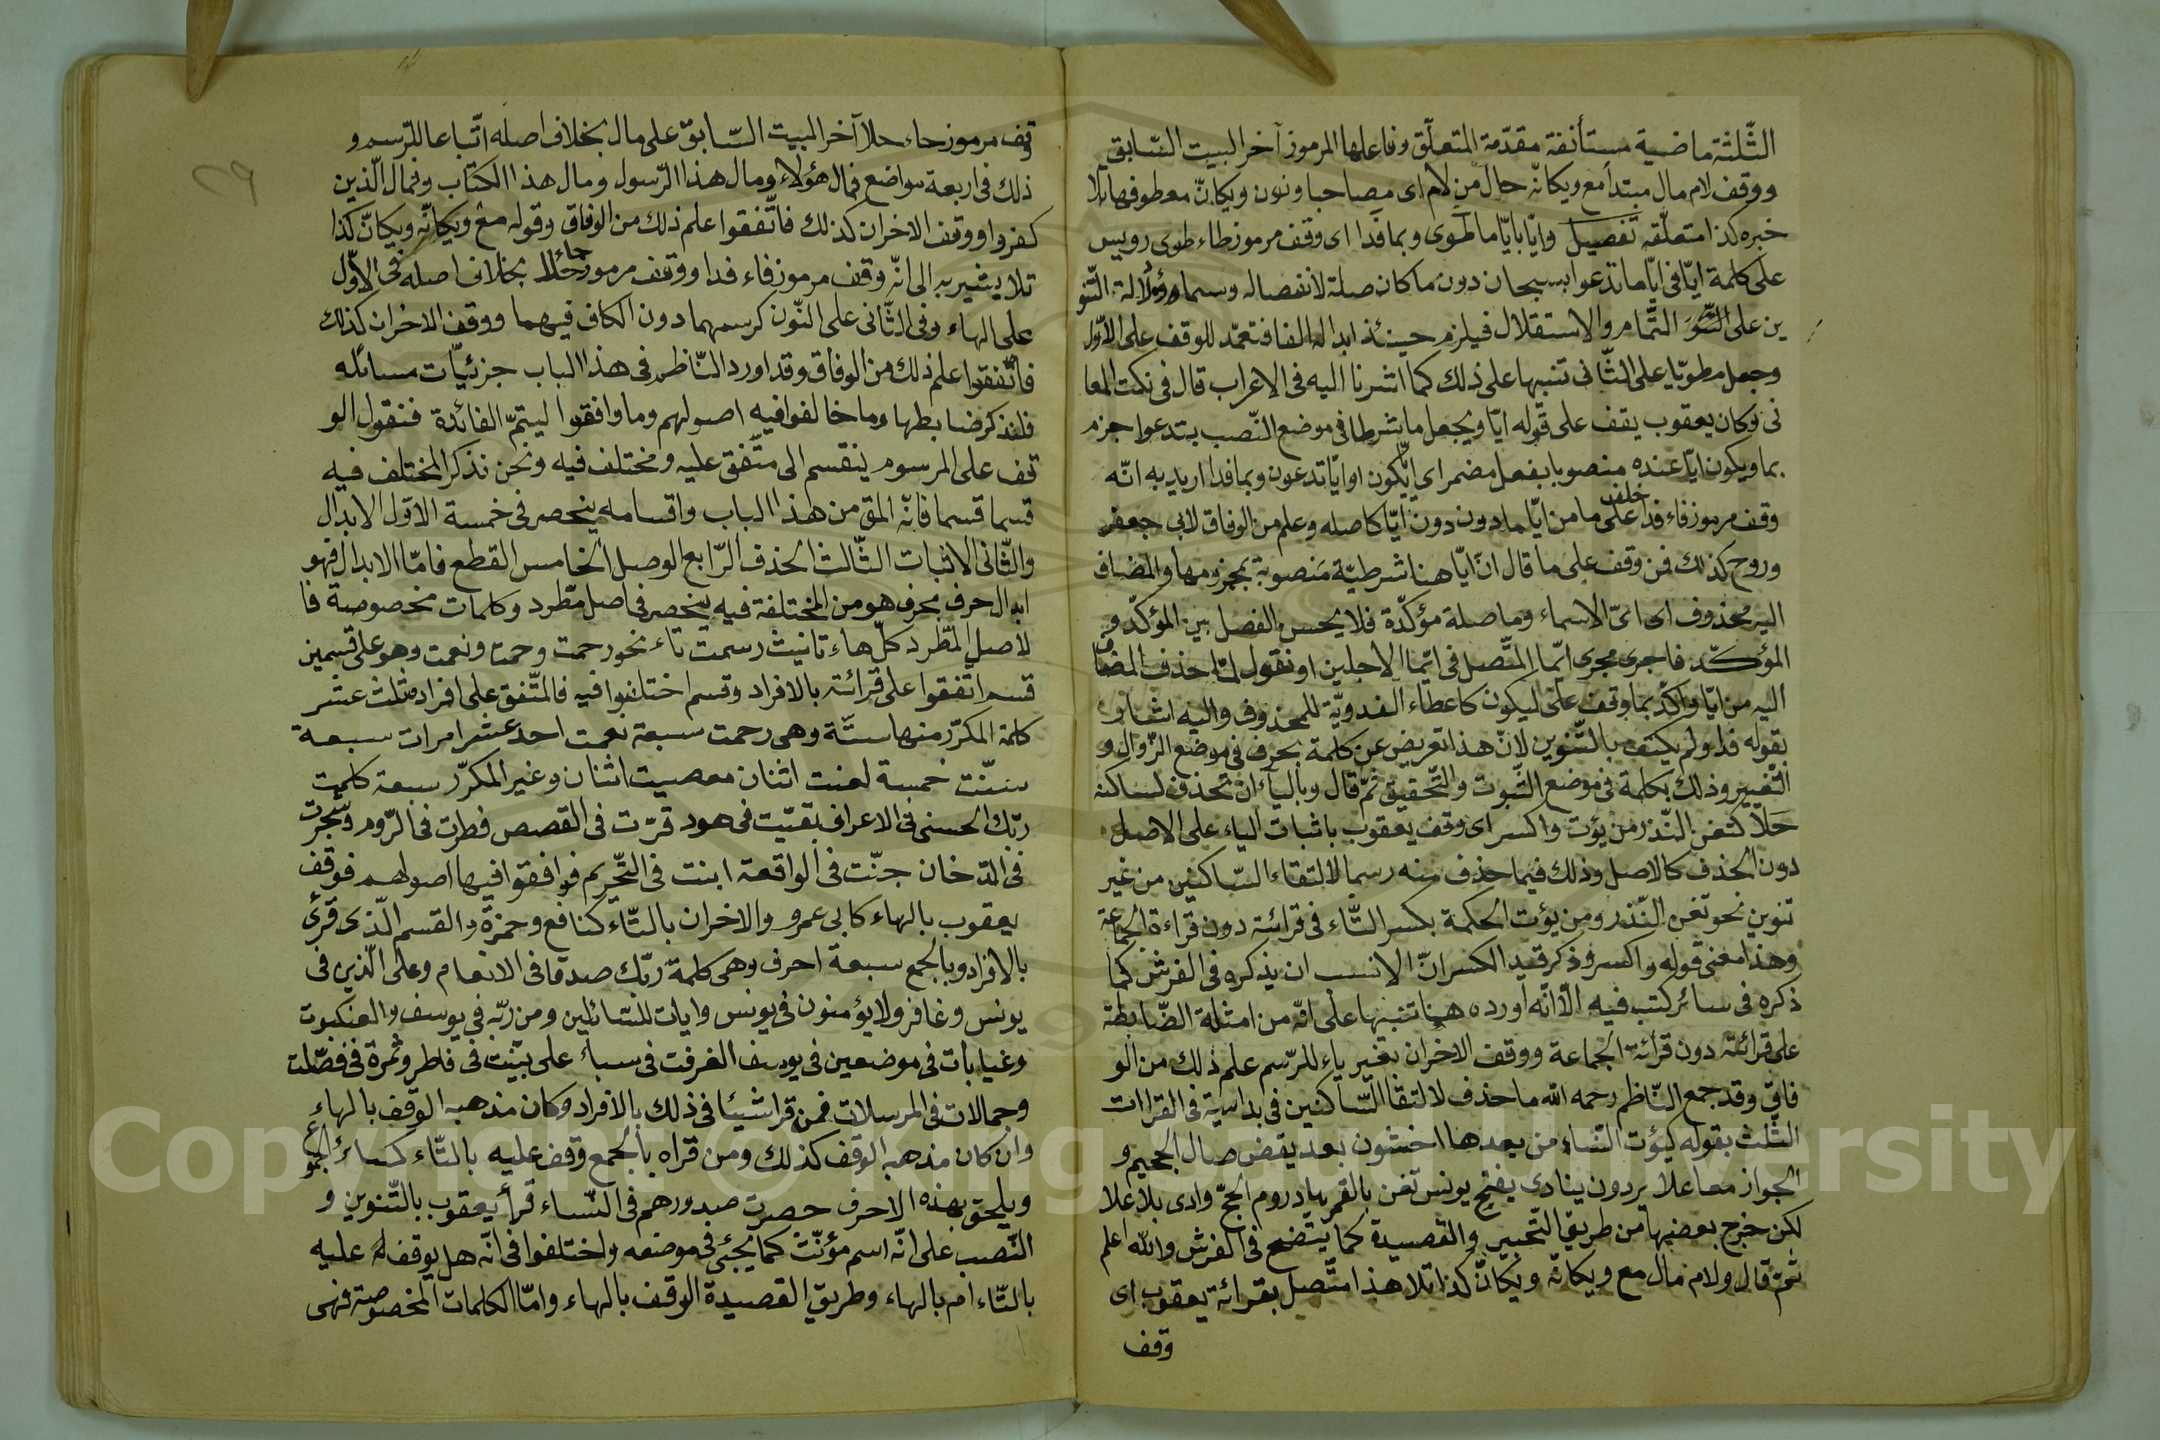 الثّلثة ماضية مستأنفة مقدّمة المتعلّق وفاعلها المرموز آخر البيت السّابق
ووقف لام مال مبتدأ مع ويكانّه حال من لام اى مصاحبا ونون ويكانّ معطوفها تلا
خبره كذا متعلّقه تفصيل وايّا بايّا ما طوى وبما فدا اى وقف مرموز طاء طوى رويس
على كلمة ايّا فى ايّا ما تدعوا بسبحان دون ما كان صلة لانفصاله وسما ودلالة التّنو
ين على التّمام والاستقلال فيلزم حينئذ ابداله الفا فتعمّد للوقف على الاوّل
وجعل مطويّا على الثّانى تنبيها على ذلك كما اشرنا اليه فى الاعراب قال فى نكت المعا
نى وكان يعقوب يقف على قوله ايّا ويجعل ما شرطا فى موضع النّصب بتدعوا جزم
بما ويكون ايّا عنده منصوبا بفعل مضمر اى ايّا يكون او ايّا تدعون وبما فدا اريد به انّه
وقف مرموز فاء فدا خلف على ما من ايّا ما دون دون ايّا كاصله وعلم من الوفاق لابى جعفر
وروح كذلك فمن وقف على ما قال انّ ايّا هنا شرطيّة منصوبة بمجزومها والمضاف
اليه محذوف اى اىّ الاسماء وما صلة مؤكّدة فلا يحسن الفصل بين المؤكّد و
المؤكّد فاجرى مجرى ايّما المتّصل فى ايّما الاجلين او نقول لمّا حذف المضاف
اليه من ايّا واكّد بما وقف على ليكون كاعطاء الفدويّة للمحذوف واليه اشار
بقوله فدا ولم يكتف بالتّنوين لانّ هذا تعريض عن كلمة بحرف فى موضع الزّوال و
التّغيير وذلك بكلمة فى موضع الثّبوت والتّحقيق ثمّ قال وبالياء ان تحذف لساكنه
حلا كتغن النّذر من يؤت واكسر اى وقف يعقوب باثبات الياء على الاصل
دون الحذف كالاصل وذلك فيما حذف منه رسما لالتقاء السّاكنين من غير
تنوين نحو تغن النّذر ومن يؤت الحكمة بكسر التّاء فى قرائته دون قراءة الجماعة
وهذا معنى قوله واكسر وذكر قيد الكسر انّ الانسب ان يذكره فى الفرش كما
ذكره فى سائر كتب فيه الّا انّه اورده هنا تنبيها على انّه من امثلة الضّابطة
على قرائته دون قرائة الجماعة ووقف الاخران بغير ياء للرّسم علم ذلك من الو
فاق وقد جمع النّاظم رحمه الله ما حذف لالتقا السّاكنين فى بداية فى القرات
الثّلث بقوله كيؤت النّساء من بعدها اخشون بعد يقض صال الجحيم و
الجوار معا علا يردون ينادى بفتح يونس تغن بالقمر بهاد روم الحجّ وادى بلا علا
لكن خرج بعضها من طريق التّحبير والقصيدة كما يتّضح فى الفرش والله اعلم
ثمّ قال ولام مال مع ويكانّه ويكانّ كذا تلا هذا متّصل بقرائة يعقوب اى
وقف
وقف مرموز حاء حلا آخر البيت السّابق على مال بخلاف اصله اتّباعا للرّسم و
ذلك فى اربعة مواضع فمال هؤلاء ومال هذا الرّسول ومال هذا الكتاب وفمال الّذين
كفروا ووقف الاخران كذلك فاتّفقوا علم ذلك من الوفاق وقوله مع ويكانّه ويكانّ كذا
تلا يشير به الى انّه وقف مرموز فاء فدا ووقف مرموز حاء حلا بخلاف اصله فى الاوّل
على الهاء وفى الثّانى على النّون كرسمهما دون الكاف فيهما ووقف الاخران كذلك
فاتّفقوا علم ذلك من الوفاق وقد اورد النّاظم فى هذا الباب جزئيّات مسائله
فلنذكر ضابطها وما خالفوا فيه اصولهم وما وافقوا ليتمّ الفائدة فنقول الو
قف على المرسوم ينقسم الى متّفق عليه ومختلف فيه ونحن نذكر المختلف فيه
قسما قسما فانّه المق من هذا الباب واقسامه ينحصر فى خمسة الاوّل الابدال
والثّانى الاثبات الثّالث الحذف الرّابع الوصل الخامس القطع فامّا الابدال فهو
ابدال حرف بحرف هو من المختلفة فيه ينحصر فى اصل مطّرد وكلمات مخصوصة فا
لاصل المطّرد كلّ هاء تانيث رسمت تاء نحو رحمت ونعمت وهو على قسمين
قسم اتّفقوا على قرائته بالافراد وقسم اختلفوا فيه فالمتّفق على افراده ثلث عشر
كلمة المكرّر منها ستّة وهى رحمت سبعة نعمت احد عشر امرات سبعة
سنّت خمسة لعنت اثنان معصيت اثنان وغير المكرّر سبعة كلمت
ربّك الحسنى فى الاعراف بقيّت فى هود قرّت فى القصص فطرت فى الرّوم وشجرت
فى الدّخان جنّت فى الواقعة ابنت فى التّحريم فوافقوا فيها اصولهم فوقف
يعقوب بالهاء كابى عمرو والاخران بالتّاء كنافع وحمزة والقسم الّذى قرئ
بالافراد وبالجمع سبعة احرف وهى كلمة ربّك صدقا فى الانعام وعلى الّذين فى
يونس وغافر ولا يؤمنون فى يونس وايات للسّائلين ومن ربّه فى يوسف والعنكبوت
وغيابات فى موضعين فى يوسف الغرفت فى سبأ على بيّنت فى فاطر وثمرة فى فصّلت
وجمالات فى المرسلات فمن قرا شيئا فى ذلك بالافراد وكان مذهبه الوقف بالهاء
وان كان مذهبه الوقف كذلك ومن قراه بالجمع وقف عليه بالتّاء كسائر الجموع
ويلحق بهذه الاحرف حصرت صدورهم فى النّساء قرأ يعقوب بالتّنوين و
النّصب على انّه اسم مؤنّث كما يجئ فى موضعه واختلفوا فى انّه هل يوقف له عليه
بالتّاء ام بالهاء وطريق القصيدة الوقف بالهاء وامّا الكلمات المخصوصة فهى
٢٩
Copyright © King Saud University